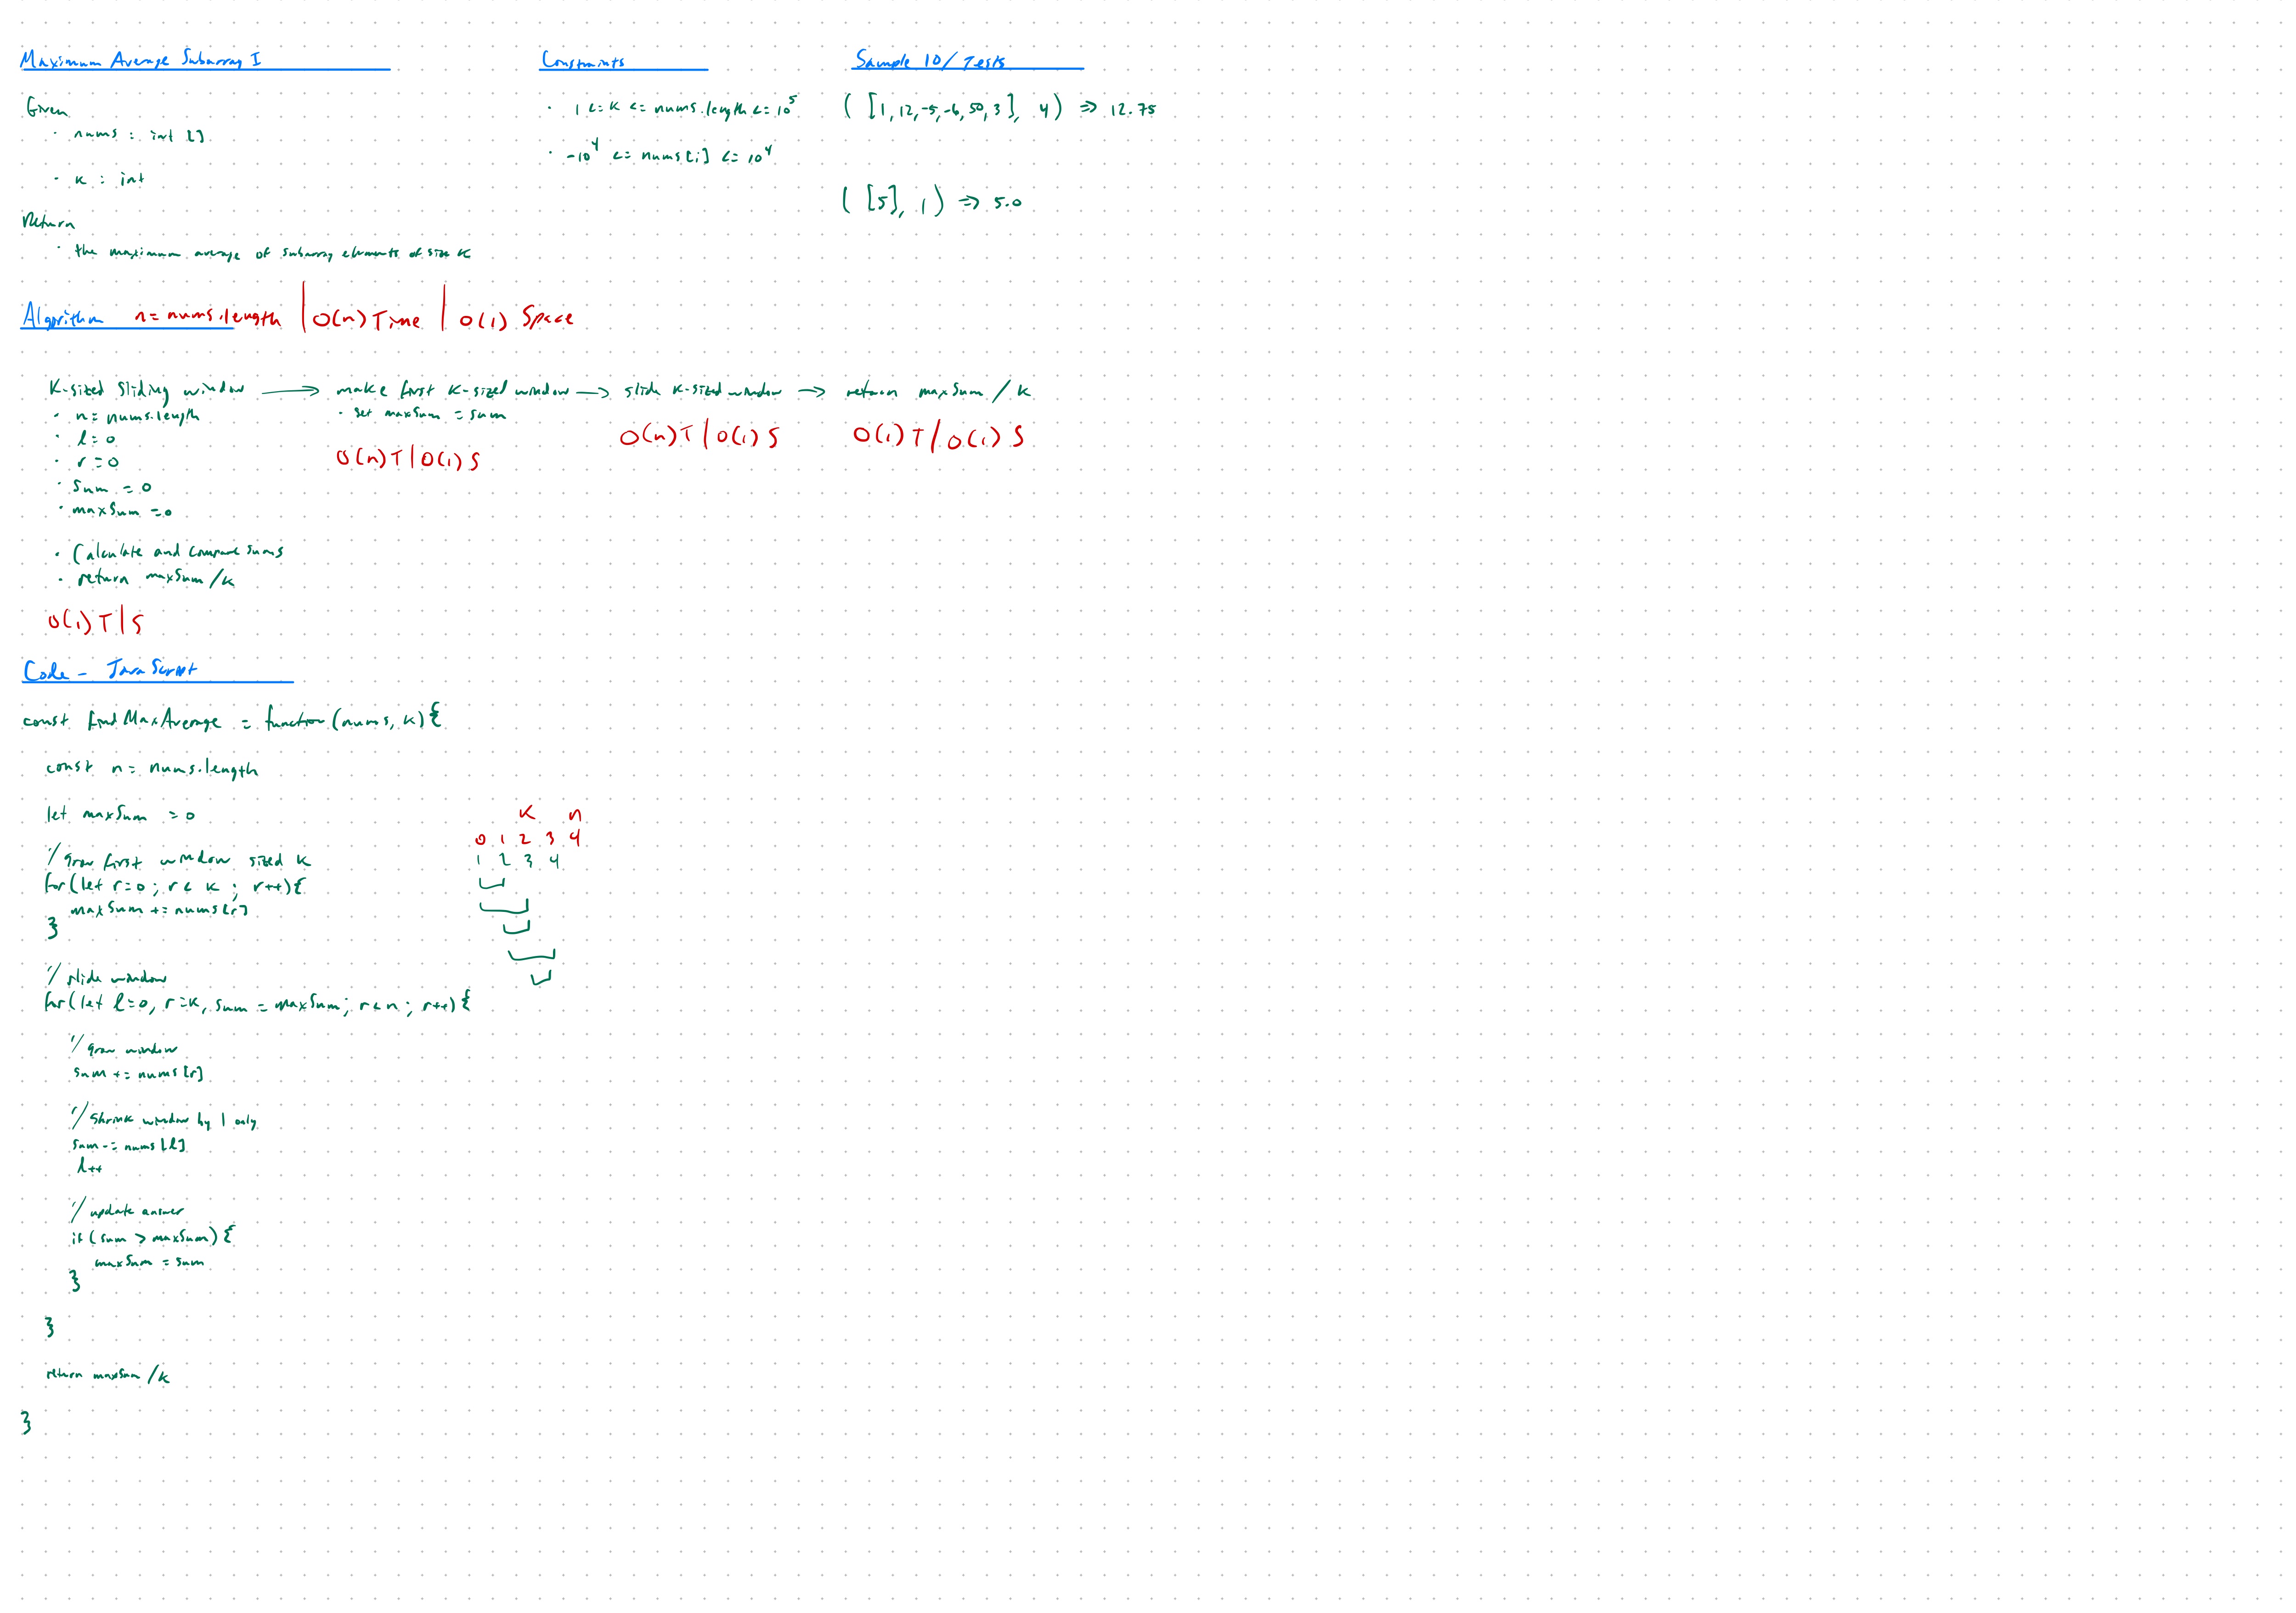 Maximum Average Subarray I
Given
· nums : int []
· k : int
Return
· the maximum average of subarray elements of size k
Constraints
· 1 <= k <= nums.length <= 10^5
· -10^4 <= nums[i] <= 10^4
Sample IO/Tests
( [1, 12, -5, -6, 50, 3], 4) => 12.75
( [5], 1) => 5.0
Algorithm n = nums.length | O(n) Time | O(1) Space
K-sized sliding window → make first K-sized window → slide K-sized window → return maxSum / k
· n = nums.length
· l = 0
· r = 0
· sum = 0
· maxSum = 0
· Calculate and compare sums
· return maxSum / k
O(1) T | S
· set maxSum = sum
O(n) T | O(1) S
O(n) T | O(1) S
O(1) T / O(1) S
Code - JavaScript
const findMaxAverage = function(nums, k) {
const n = nums.length
let maxSum = 0
// grow first window sized k
for(let r=0; r < k; r++){
maxSum += nums[r]
}
// slide window
for(let l=0, r=k, sum = maxSum; r < n; r++){
// grow window
sum += nums[r]
// shrink window by 1 only
sum -= nums[l]
l++
// update answer
if (sum > maxSum) {
maxSum = sum
}
}
return maxSum / k
}
k n
0 1 2 3 4
1 2 3 4